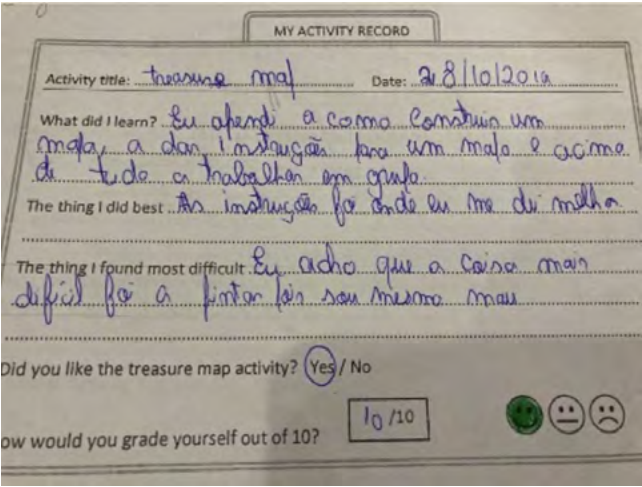 MY ACTIVITY RECORD
Activity title: treasure map Date: 28/10/2019
What did I learn? Eu aprendi a como construir um
mapa, a dar instruções para um mapa e acima
de tudo a trabalhar em grupo.
The thing I did best As instruções foi onde eu me dei melhor
The thing I found most difficult Eu acho que a coisa mais
dificil foi a pintar pois sou mesmo mau
Did you like the treasure map activity? Yes / No
ow would you grade yourself out of 10? 10 /10